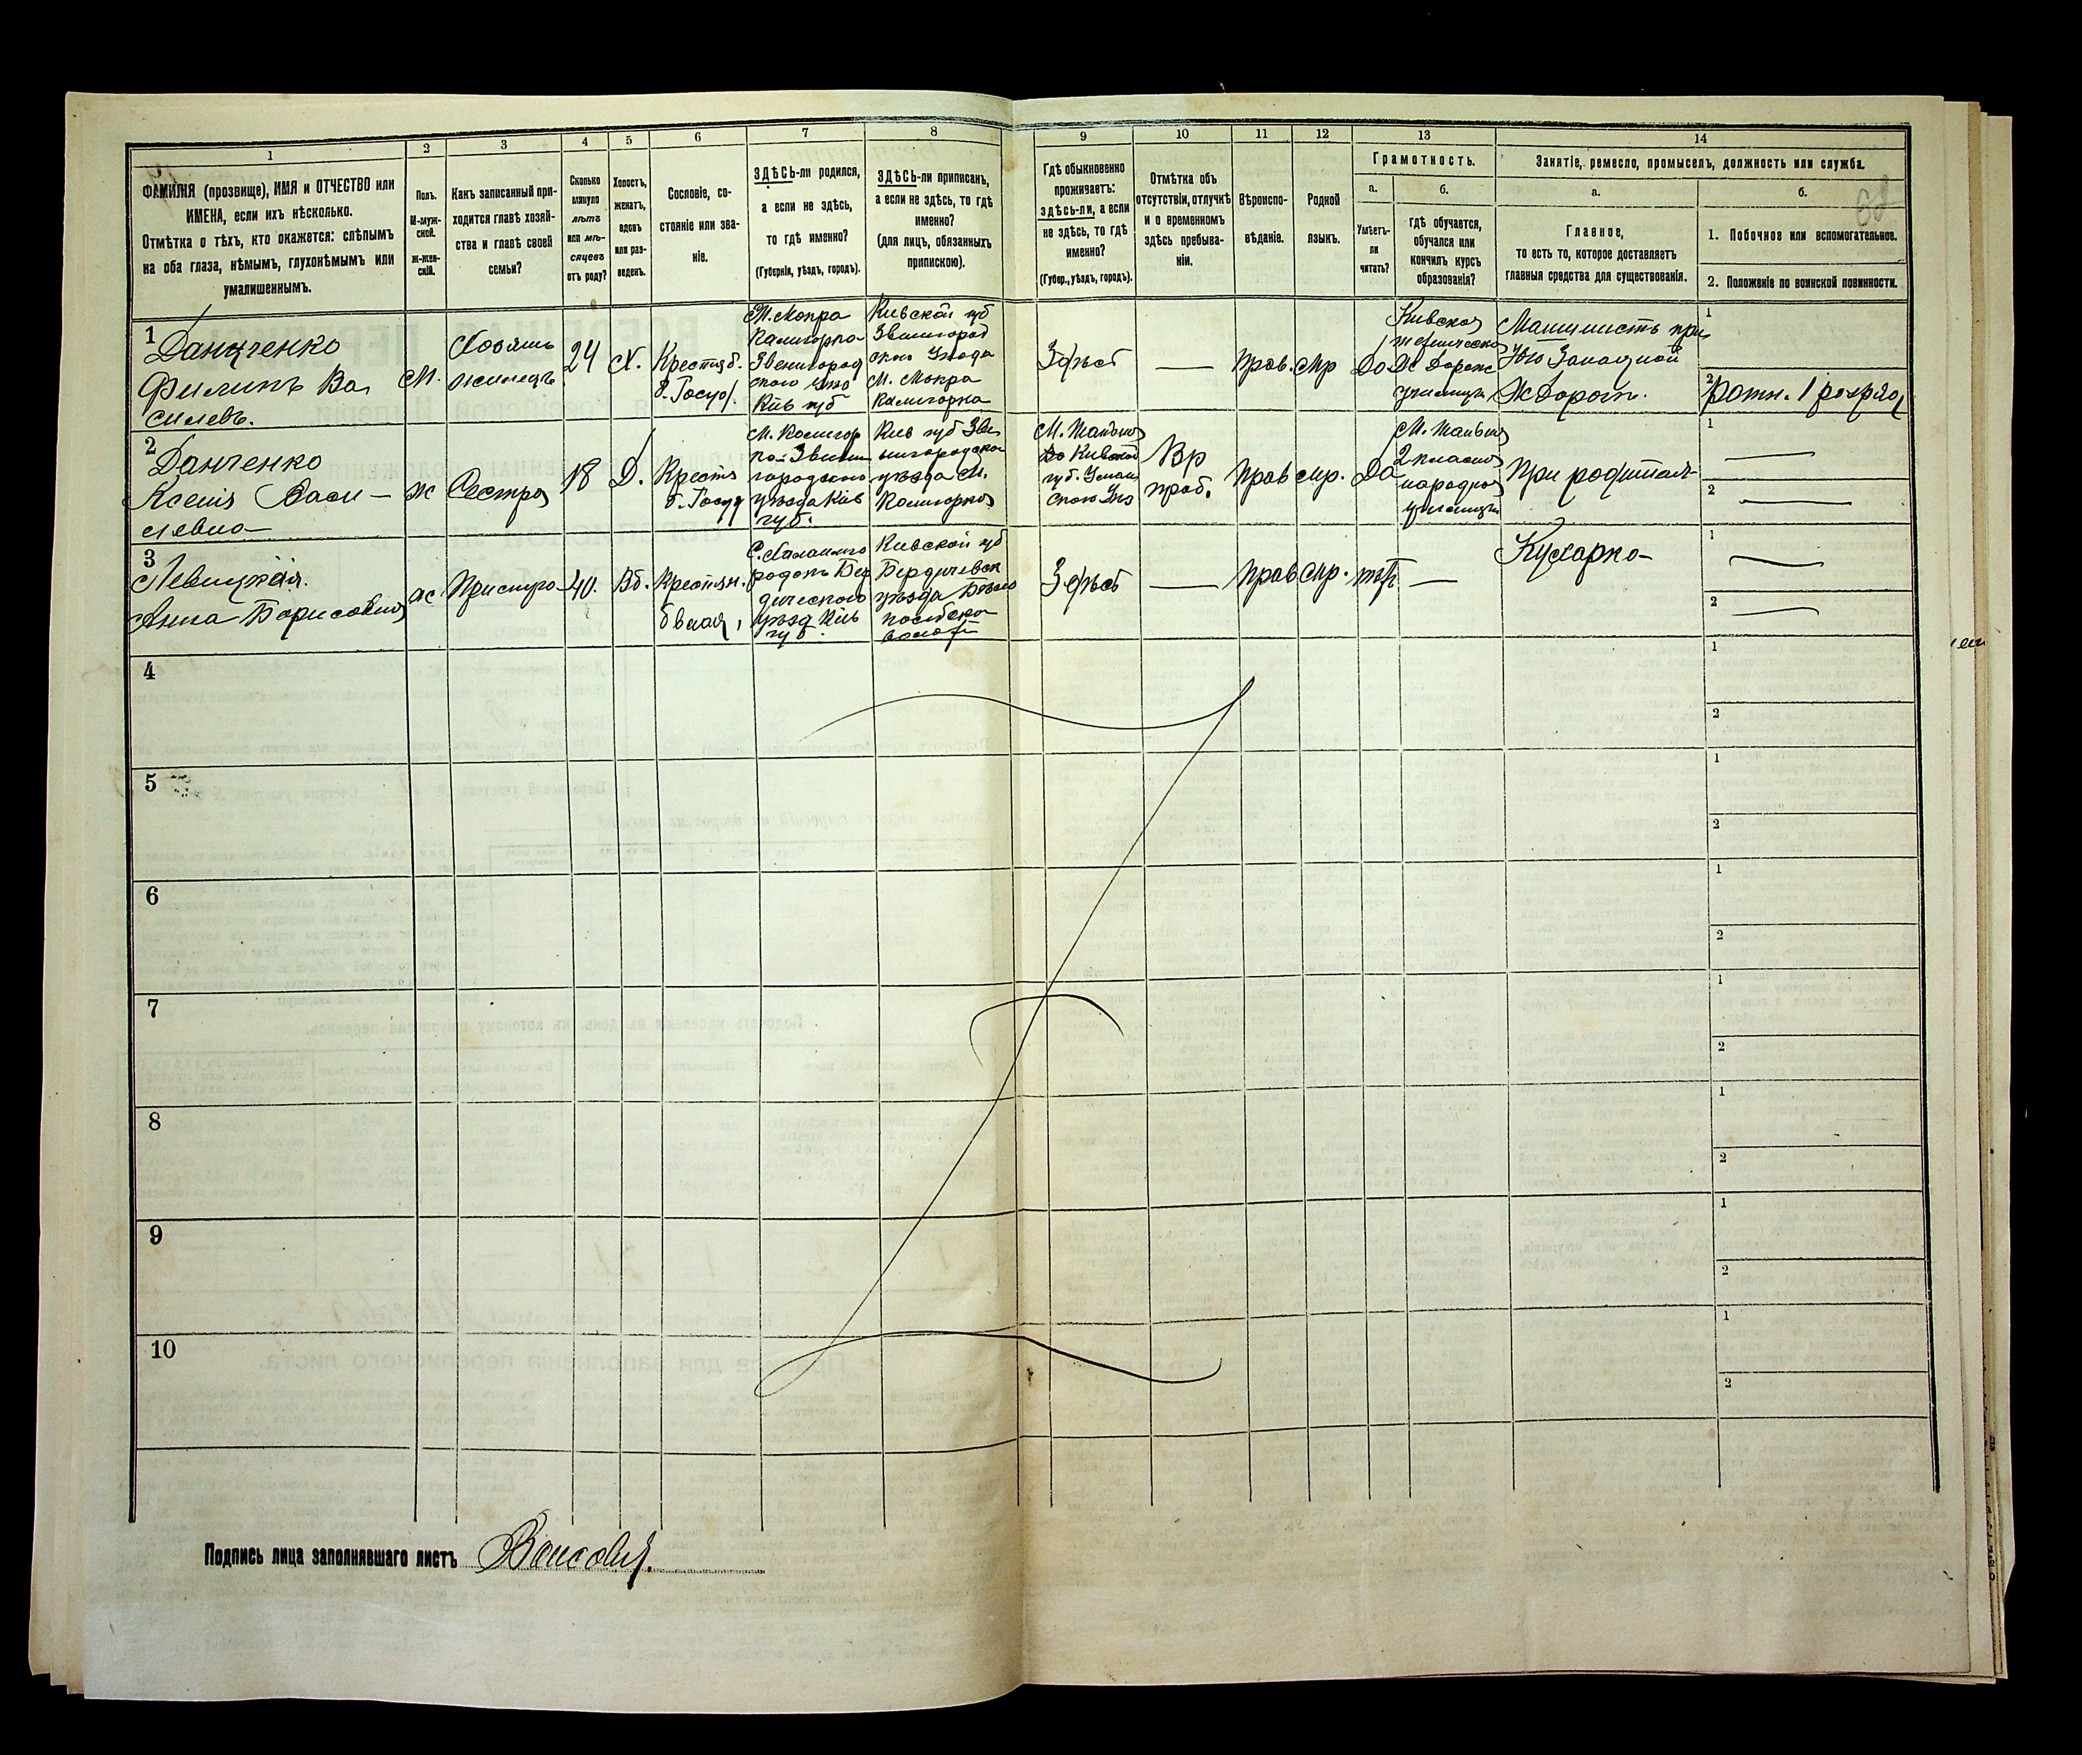 1 2 3 4 5 6 7 8 9 10 11 12 13 14
ФАМИЛІЯ (прозвище), ИМЯ и ОТЧЕСТВО или
ИМЕНА, если ихъ нѣсколько.
Отмѣтка о тѣхъ, кто окажется: слѣпымъ
на оба глаза, нѣмымъ, глухонѣмымъ или
умалишеннымъ.
Полъ.
М-муж-
ской.
Ж-жен-
скій.
Какъ записанный при-
ходится главѣ хозяй-
ства и главѣ своей
семьи?
Сколько
минуло
лѣтъ
или мѣ-
сяцевъ
отъ роду?
Холостъ,
женатъ,
вдовъ
или раз-
веденъ.
Сословіе, со-
стояніе или зва-
ніе.
ЗДѢСЬ-ли родился,
а если не здѣсь,
то гдѣ именно?
(Губернія, уѣздъ, городъ).
ЗДѢСЬ-ли приписанъ,
а если не здѣсь, то гдѣ
именно?
(для лицъ, обязанныхъ
припискою).
Гдѣ обыкновенно
проживаетъ:
здѣсь-ли, а если
не здѣсь, то гдѣ
именно?
(Губер., уѣздъ, городъ).
Отмѣтка объ
отсутствіи, отлучкѣ
и о временномъ
здѣсь пребыва-
ніи.
Вѣроиспо-
вѣданіе.
Родной
языкъ.
Грамотность.
а.
Умѣетъ-
ли
читать?
б.
Гдѣ обучается,
обучался или
кончилъ курсъ
образованія?
Занятіе, ремесло, промыселъ, должность или служба.
а.
Главное,
то есть то, которое доставляетъ
главныя средства для существованія.
б.
68
1. Побочное или вспомогательное.
2. Положеніе по воинской повинности.
1
Данченко
Филипъ Ва
силевъ.
М.
Хозяинъ
жилецъ
24
Х.
Крестя б.
б. Госуд.
М. Мокра
Калигорка
Звенигород
ского
Кіев губ
Киевской губ
Звенигород
ского Уезда
М. Мокра
Калигорка
Здѣсь
—
прав.
мр
Да
Киевская
техническа
Ж Дорож
училище
Машинистъ при
Юго Западной
Ж Дороги.
1
2
Ратн. 1 розряд
2
Данченко
Ксенія Васи-
левна
ж
Сестра
18
Д.
Крестя
б. Госуд
М. Калигор
ка Звени
городского
уѣзда Кіев
губ.
Кив губ Зве
нигородска
уѣзда М.
Калигорка
М. Тально
Киевской
губ. Уман
ского Уез
Вр
преб.
прав
мр.
Да
М. Тально
2 класно
народно
училище
При родител
1
2
3
Левицкая.
Анна Борисовна
ж
Прислуга
40.
Вд.
Крестян.
бывая,
Бер
дического
уѣзд Кіев
губ.
Киевской губ
Бердичевск
уѣзда
волости
Здѣсь
—
прав
мр.
нѣт
—
Кухарка
1
2
4
1
2
5
1
2
6
1
2
7
1
2
8
1
2
9
1
2
10
1
2
Подпись лица заполнявшаго листъ